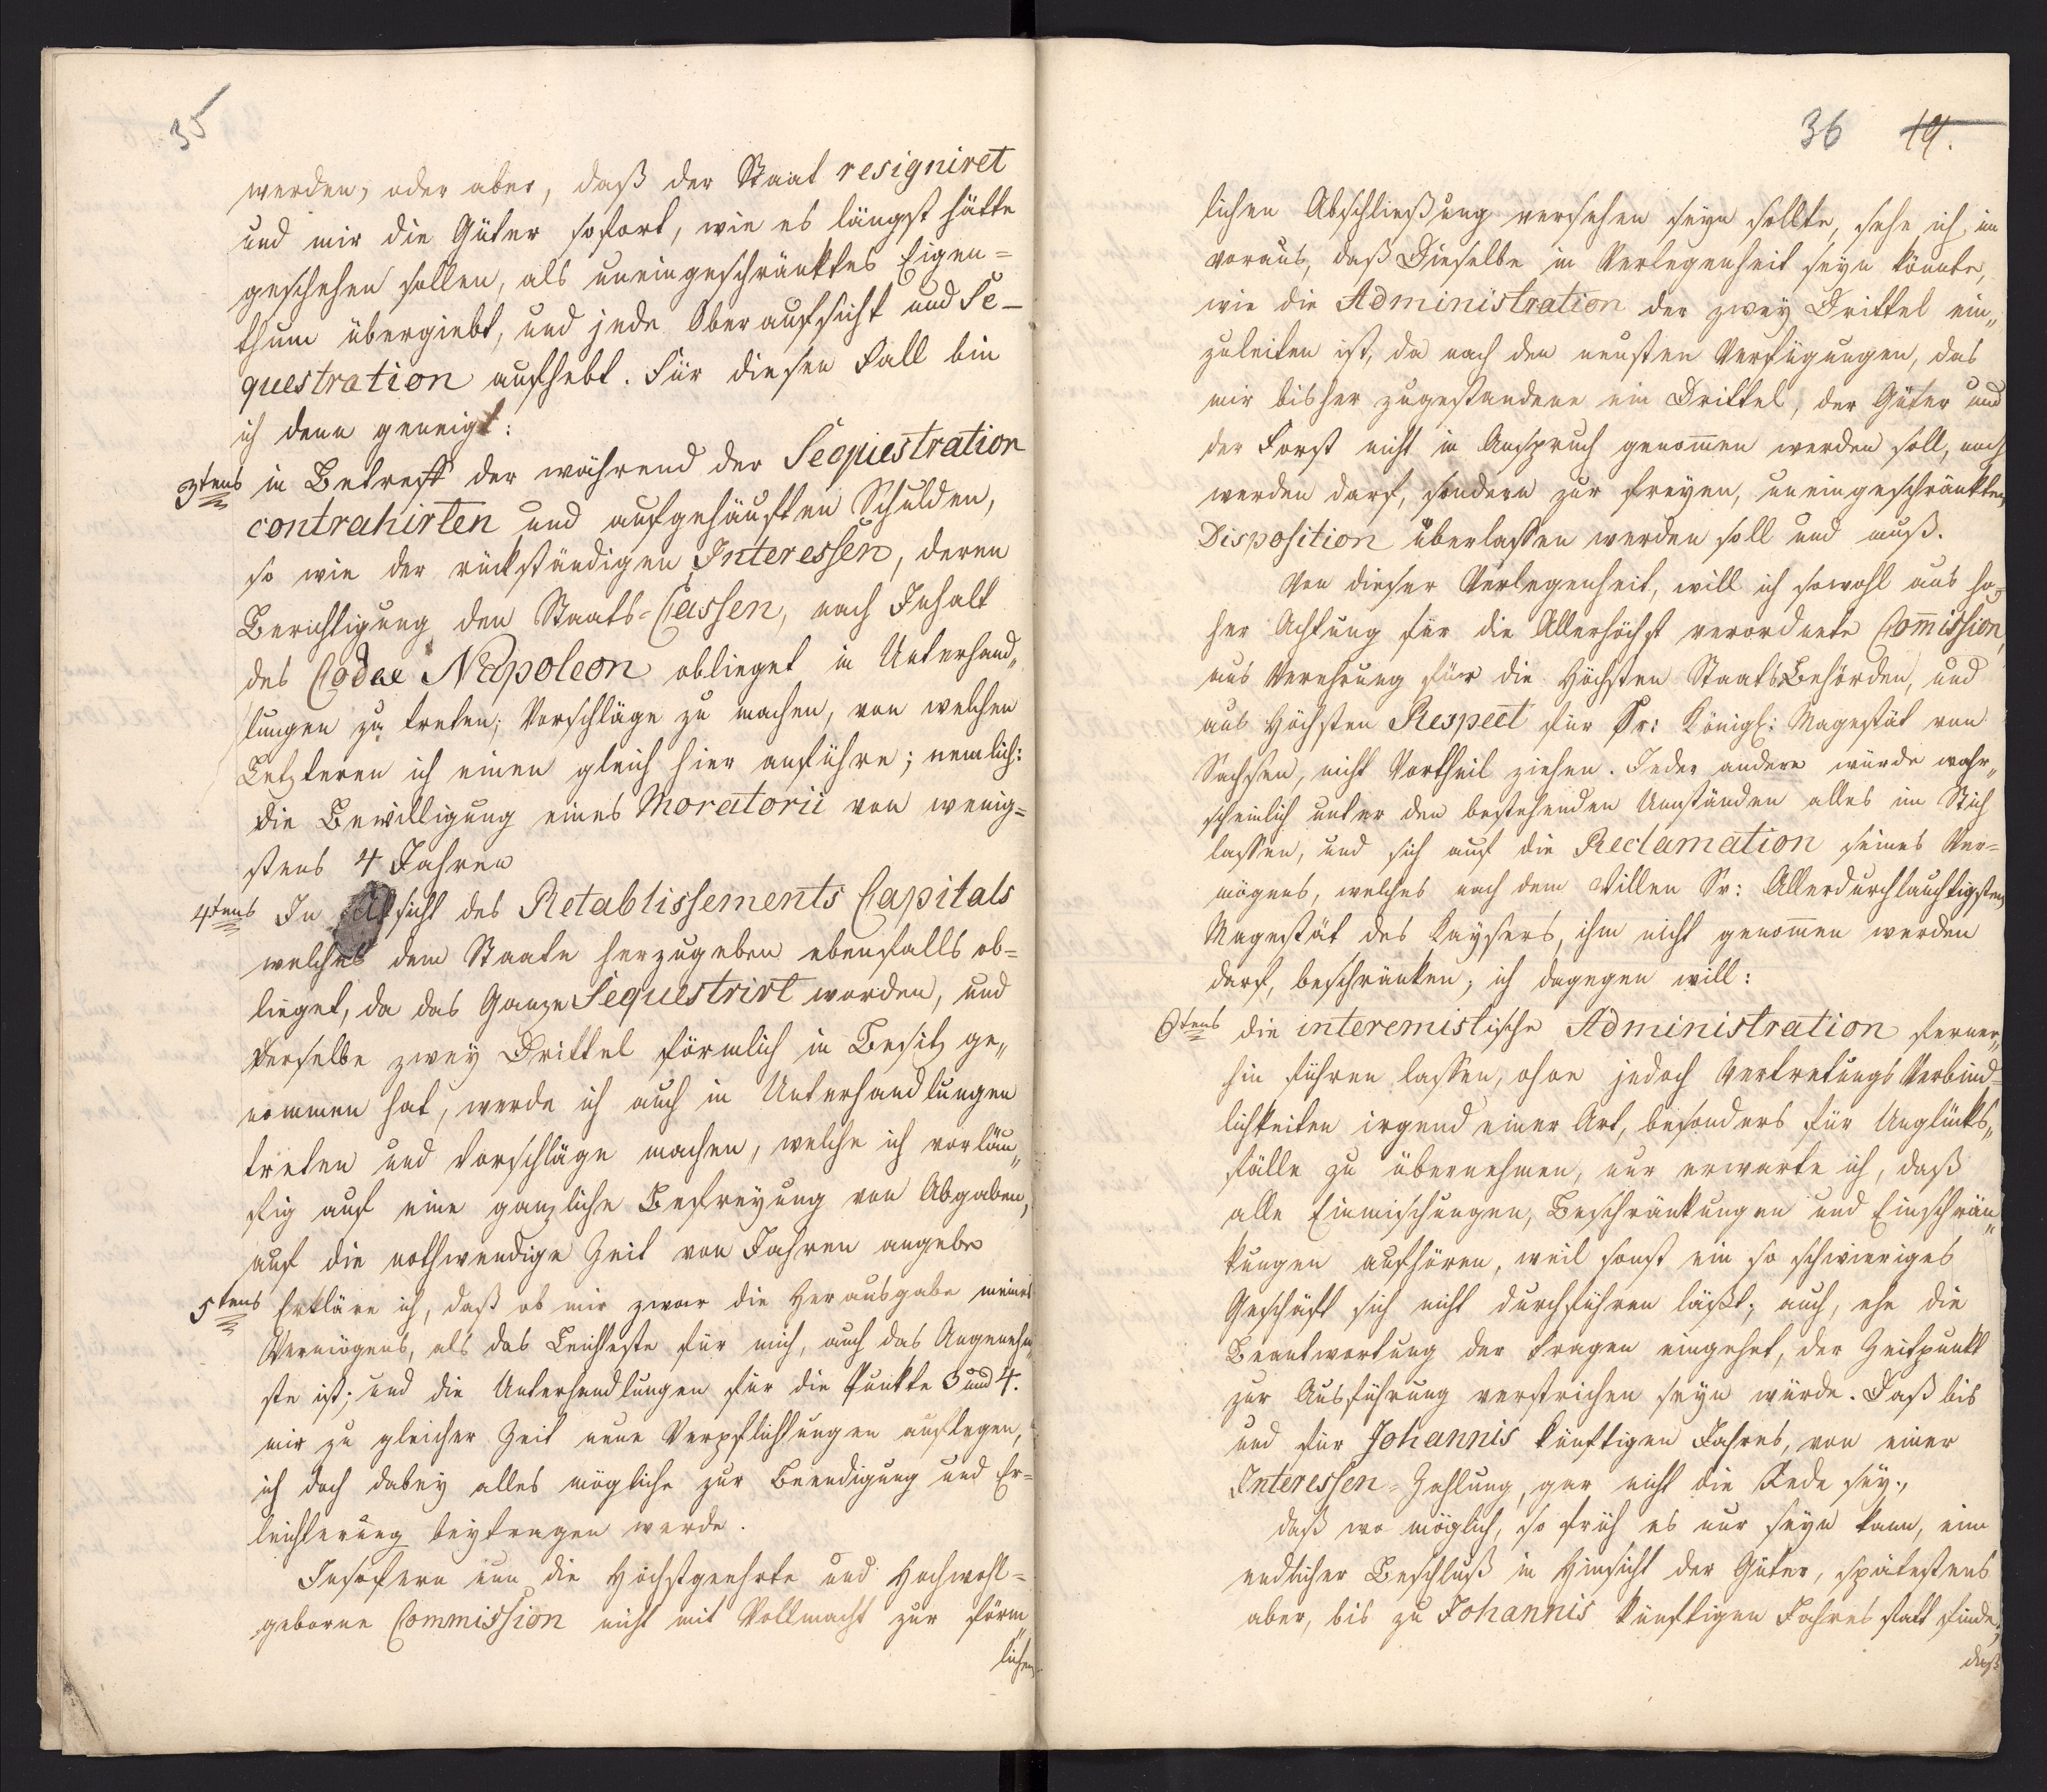 35
werden, oder aber, daß der Staat resigniret
und mir die Güter sofort, wie es längst hätte
geschehen sollen, als uneingeschränktes Eigen=
thum übergiebt, und jede Oberaufsicht und Se-
questration aufhebt. Für diesen Fall bin
ich denn geneigt:
3tens in Betreff der während der Sequestration
contrahirten und aufgehäuften Schulden,
so wie der rükständigen Interessen, deren
Berichtigung den Staats-Cassen, nach Inhalt
des Codex Napoleon oblieget in Unterhand„
lungen zu treten; Vorschläge zu machen, von welchen
Letzteren ich einen gleich hier anführe; nemlich:
die Bewilligung eines Moratorii von wenig=
stens 4 Jahren
4tens In Absicht des Retablissements Capitals
welches dem Staate herzugeben ebenfalls ob=
lieget, da das Ganze Sequestrirt worden, und
derselbe zwey Drittel förmlich in Besitz ge„
nommen hat, werde ich auch in Unterhandlungen
treten und Vorschläge machen, welche ich vorläu„
fig auf eine ganzliche Befreyung von Abgaben,
auf die nothwendige Zeit von Jahren angebe
5tens Erkläre ich, daß ob mir zwar die Herausgabe meines
Vermögens, als das Leichteste für mich, auch das Angenehm„
ste ist; und die Unterhandlungen für die Punkte 3 und 4.
mir zu gleicher Zeit neue Verpflichtungen auflegen,
ich doch dabey alles mögliche zur Beendigung und Er=
leichterung beytragen werde.
Insofern nun die Höchstgeehrte und Hochwohl=
geborne Commission nicht mit Vollmacht zur förm„
lichen
36 19.
lichen Abschließung versehen seyn sollte, sehe ich im
voraus, daß Dieselbe in Verlegenheit seyn könnte,
wie die Administration der zwey Drittel ein„
zuleiten ist, da nach den neusten Verfügungen, das
mir bisher zugestandene ein Drittel, der Güter und
der Forst nicht in Anspruch genom̄en werden soll, noch
werden darf, sondern zur freyen, uneingeschränkten
Disposition überlassen werden soll und muß.
Von dieser Verlegenheit, will ich sowohl aus ho=
her Achtung für die Allerhöchst verordnete Com̄ission,
aus Verehrung für die Höchsten StaatsBehörden, und
aus Höchsten Respect für Sr: Königl: Magestät von
Sachsen, nicht Vortheil ziehen. Jeder andere würde wahr„
scheinlich unter den bestehenden Umständen alles im Stich
lassen, und sich auf die Reclamation seines Ver=
mögens, welches nach dem Willen Sr: Allerdurchlauchtigsten
Magestät des Kaysers, ihm nicht genom̄en werden
darf, beschränken; ich dagegen will:
6tens die interemistische Administration ferner„
hin führen lassen, ohne jedoch Vertretungs Verbind=
lichkeiten irgend einer Art, besonders für Unglücks„
fälle zu übernehmen, nur erwarte ich, daß
alle Einmischungen, Beschränkungen und Einschrän„
kungen aufhören, weil sonst ein so schwieriges
Geschäft sich nicht durchführen läßt; auch, ehe die
Beantwortung der Fragen eingehet, der Zeitpunkt
zur Ausführung verstrichen seyn würde. Daß bis
und für Johannis künftigen Jahres, von einer
Interessen=Zahlung, gar nicht die Rede sey.,
daß wo möglich, so früh es nur seyn kann, ein
endlicher Beschluß in Hinsicht der Güter, spätestens
aber, bis zu Johannis künftigen Jahres statt finde,
daß